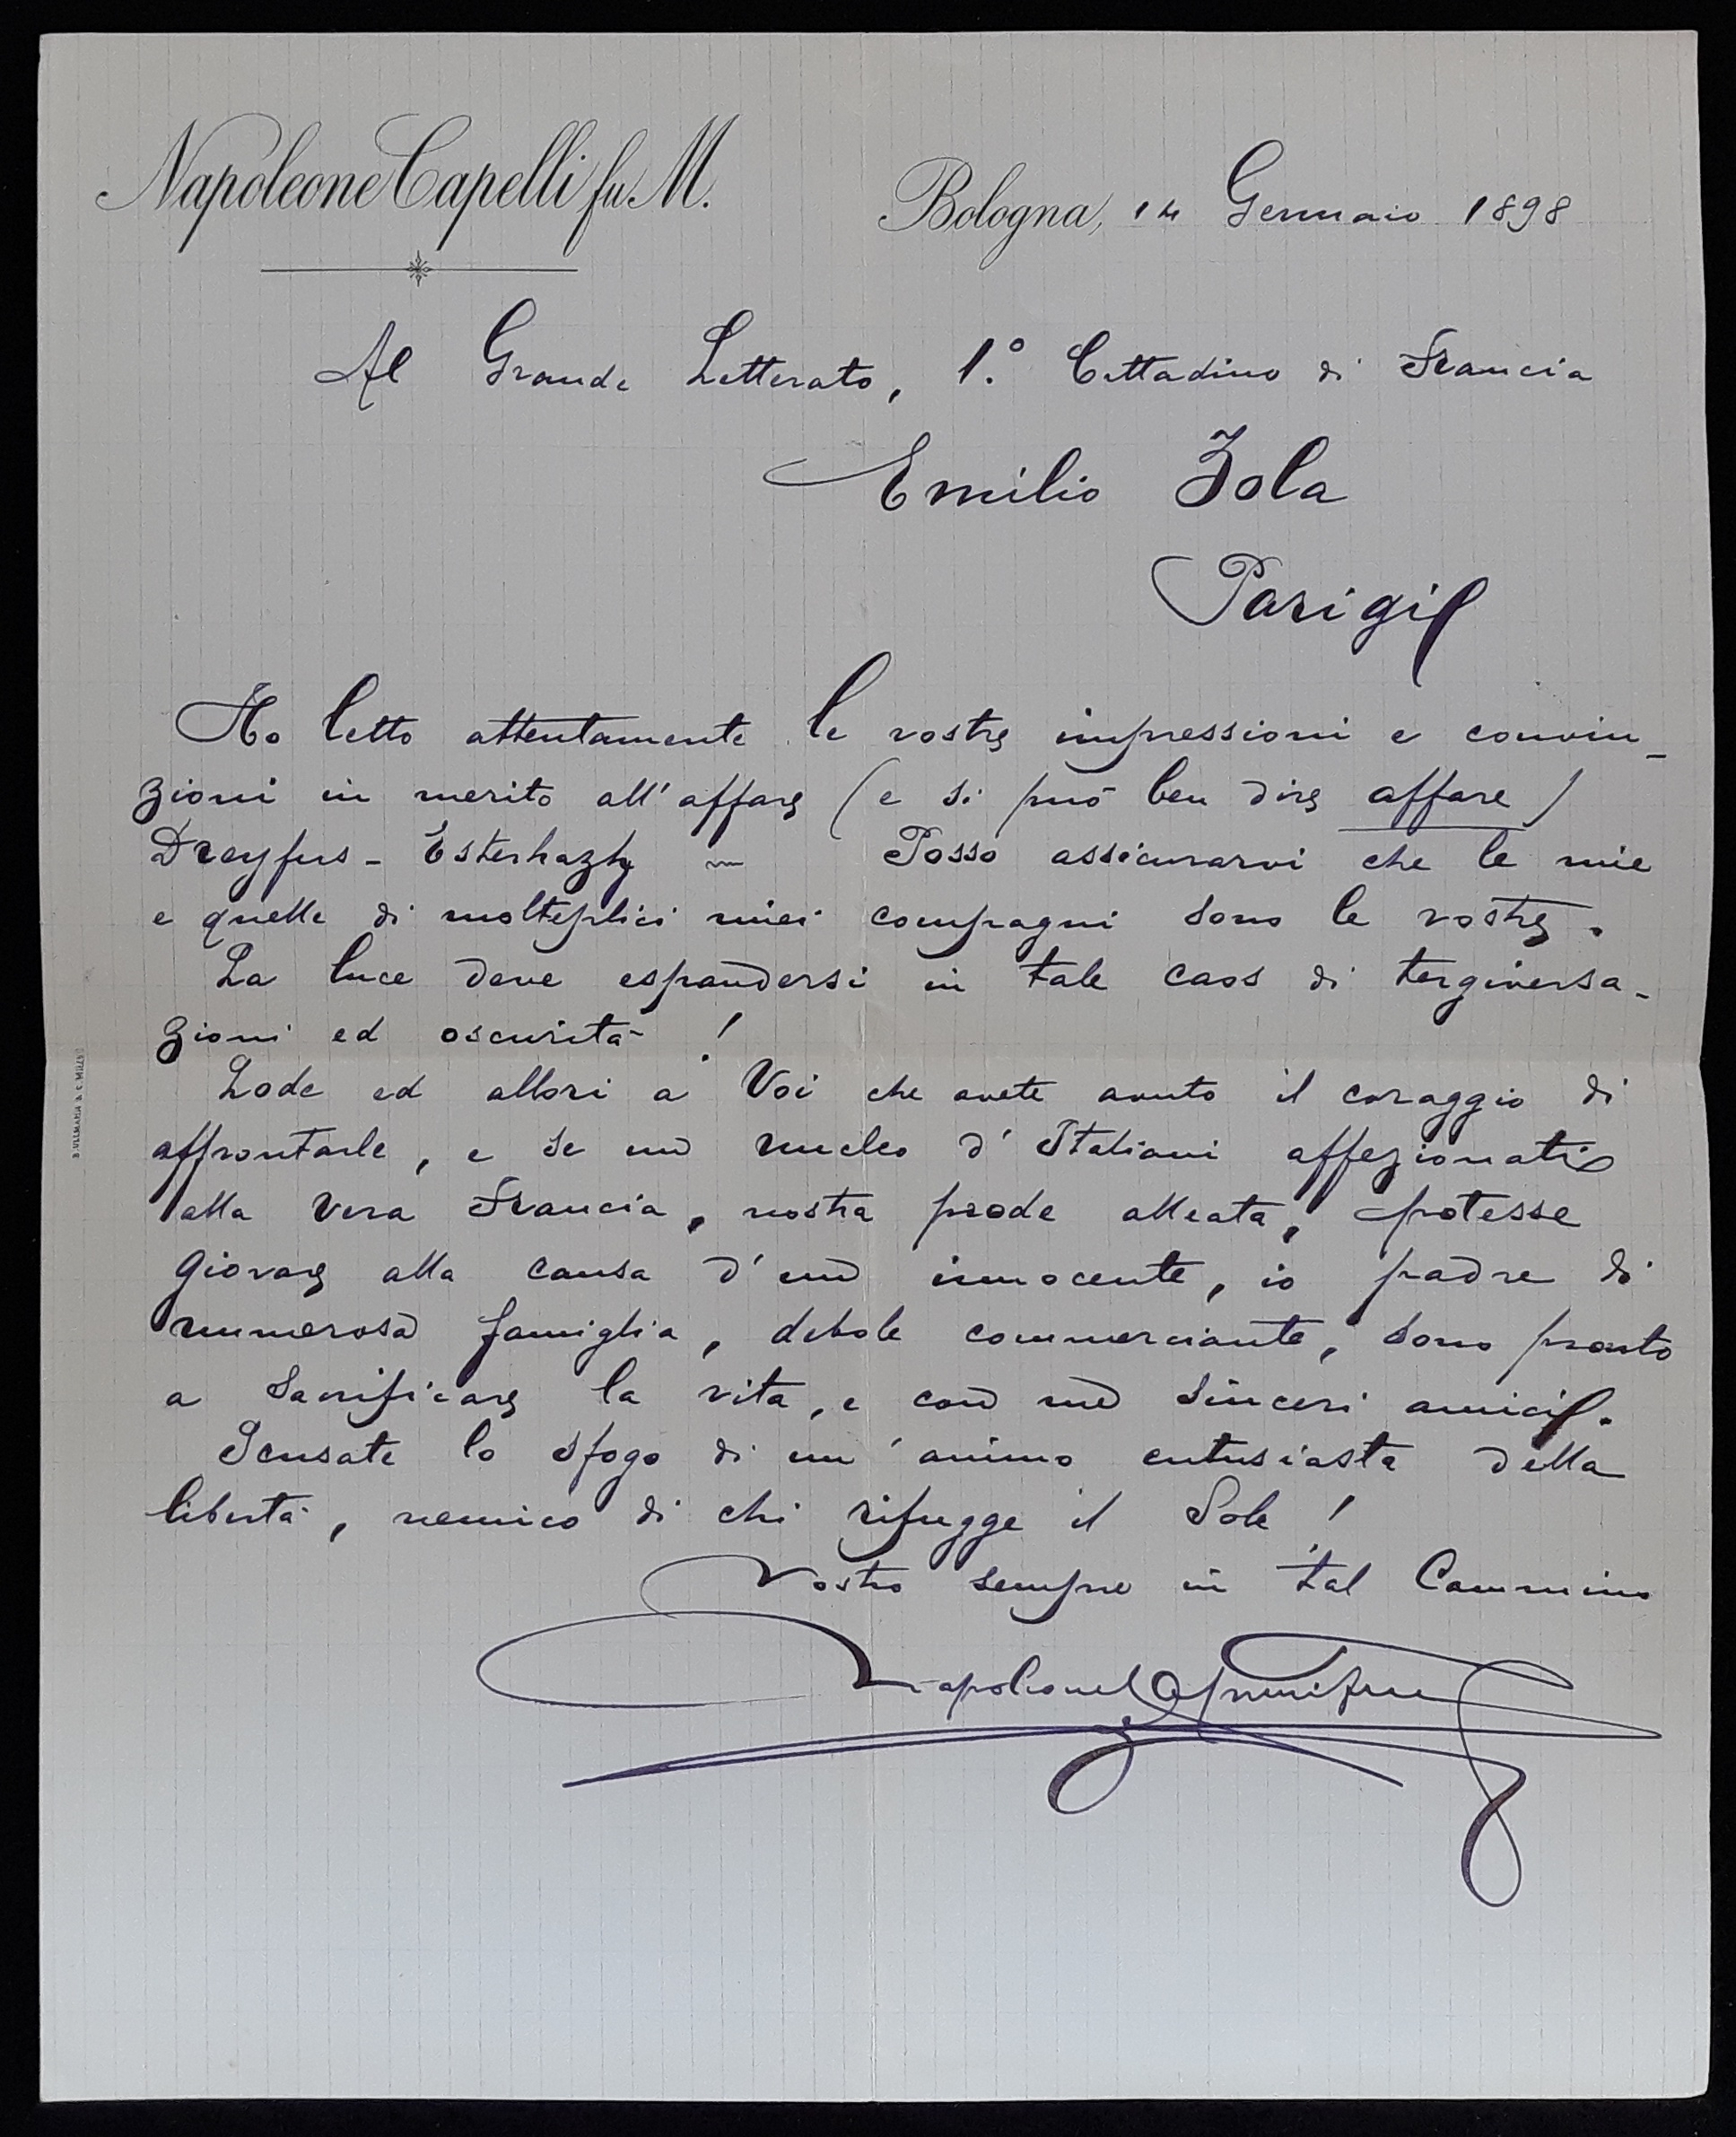 Napoleone Capelli fu M.
Bologna, 14 Gennaio 1898
Al Grande Letterato, 1.° Cittadino di Francia
Emilio Zola
Parigi
Ho letto attentamente le vostre impressioni e convin-
zioni in merito all'affare (e si può ben dire affare)
Dreyfus - Esterhazy ~ Posso assicurarvi che le mie
e quelle di molteplici miei compagni sono le vostre.
La luce deve espandersi in tale caos di tergiversa-
zioni ed oscurità!
Lode ed allori a Voi che avete avuto il coraggio di
affrontarle, e se un nucleo d'Italiani affezionati
alla vera Francia, nostra prode alleata, potesse
giovare alla causa d'un innocente, io padre di
numerosa famiglia, debole commerciante, sono pronto
a sacrificare la vita, e con me sinceri amici.
Scusate lo sfogo di un'animo entusiasta della
libertà, nemico di chi rifugge il Sole!
Vostro sempre in tal Cammino
Napoleone